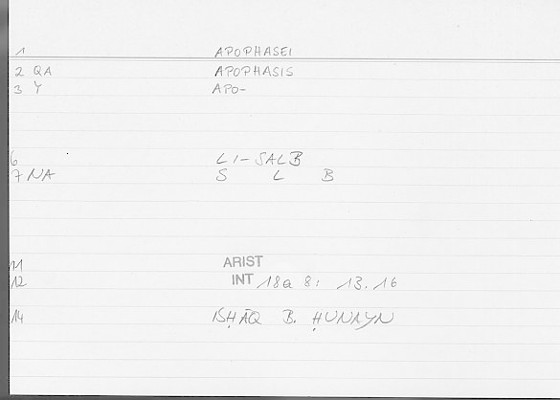 1 APOPHASEI
2 QA APOPHASIS
3 Y APO-
6 LI-SALB
7 NA S L B
11 ARIST
12 INT 18a 8: 13.16
14 ISḤĀQ B. ḤUNAYN